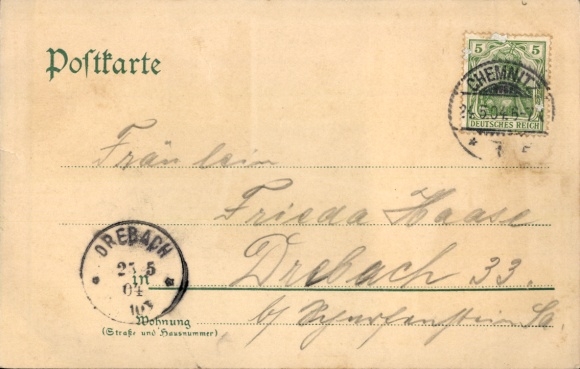 Postkarte
5 5
CHEMNITZ
DEUTSCHES REICH
Fräulein
Frieda Haase
DREBACH
25 5
04
in
Drebach 33.
b/ Scharfenstein Sa.
Wohnung
(Straße und Hausnummer)